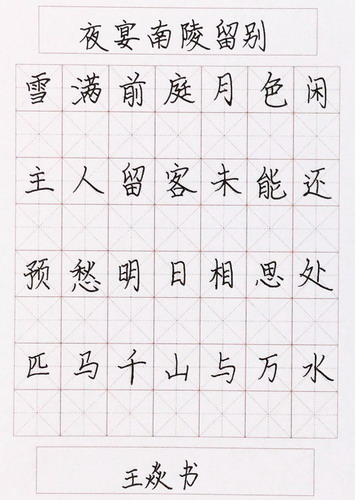 夜宴南陵留别
雪满前庭月色闲
主人留客未能还
预愁明日相思处
匹马千山与万水
王焱书